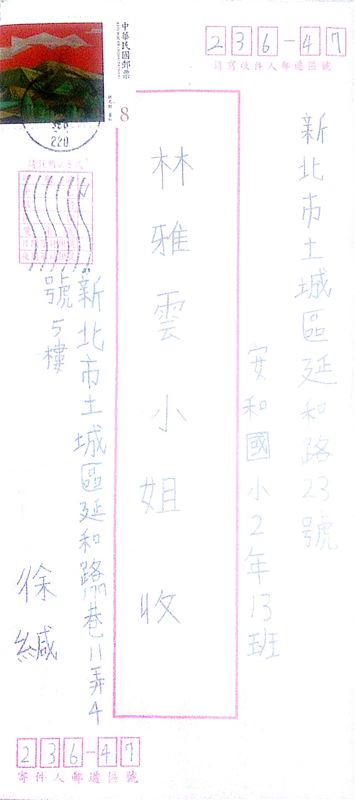 236-47
請寫收件人郵遞區號
新北市土城區延和路23號
安和國小2年13班
林雅雲小姐 收
中華民國郵票
8
220
新北市土城區延和路 巷11弄4
號5樓
徐緘
236-47
寄件人郵遞區號